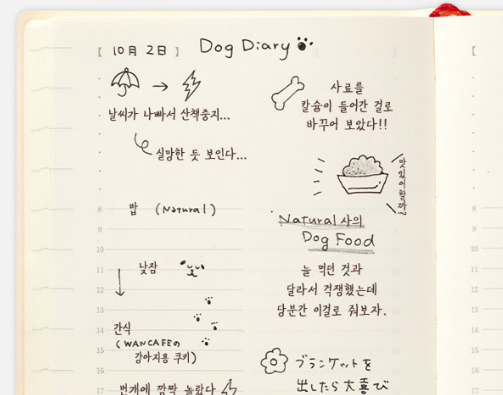 [ 10月 2日 ] Dog Diary
날씨가 나빠서 산책중지...
실망한 듯 보인다...
8
밥 (Natural)
9
10
11
낮잠
12
13
14
15
간식
(WANCAFEの
강아지용 쿠키)
16
17
번개에 깜짝 놀랐다
사료를
칼슘이 들어간 걸로
바꾸어 보았다!!
맛있어할까?
Natural사의
Dog Food
늘 먹던 것과
달라서 걱쟁했는데
당분간 이걸로 줘보자.
ブランケットを
出したら大喜び